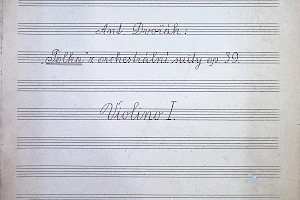 Ant. Dvořák:
„Polka" z orchestrální suity op. 39.
Violino I.